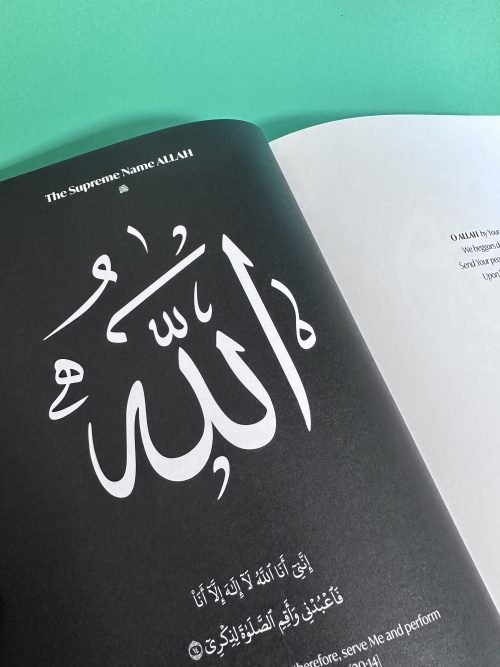 The Supreme Name ALLAH
الله
إِنَّنِىٓ أَنَا ٱللَّهُ لَآ إِلَٰهَ إِلَّآ أَنَا۠
فَٱعْبُدْنِى وَأَقِمِ ٱلصَّلَوٰةَ لِذِكْرِىٓ ١٤
herefore, serve Me and perform
[20:14]
O ALLAH by Your
We beggars
Send Your
Upon